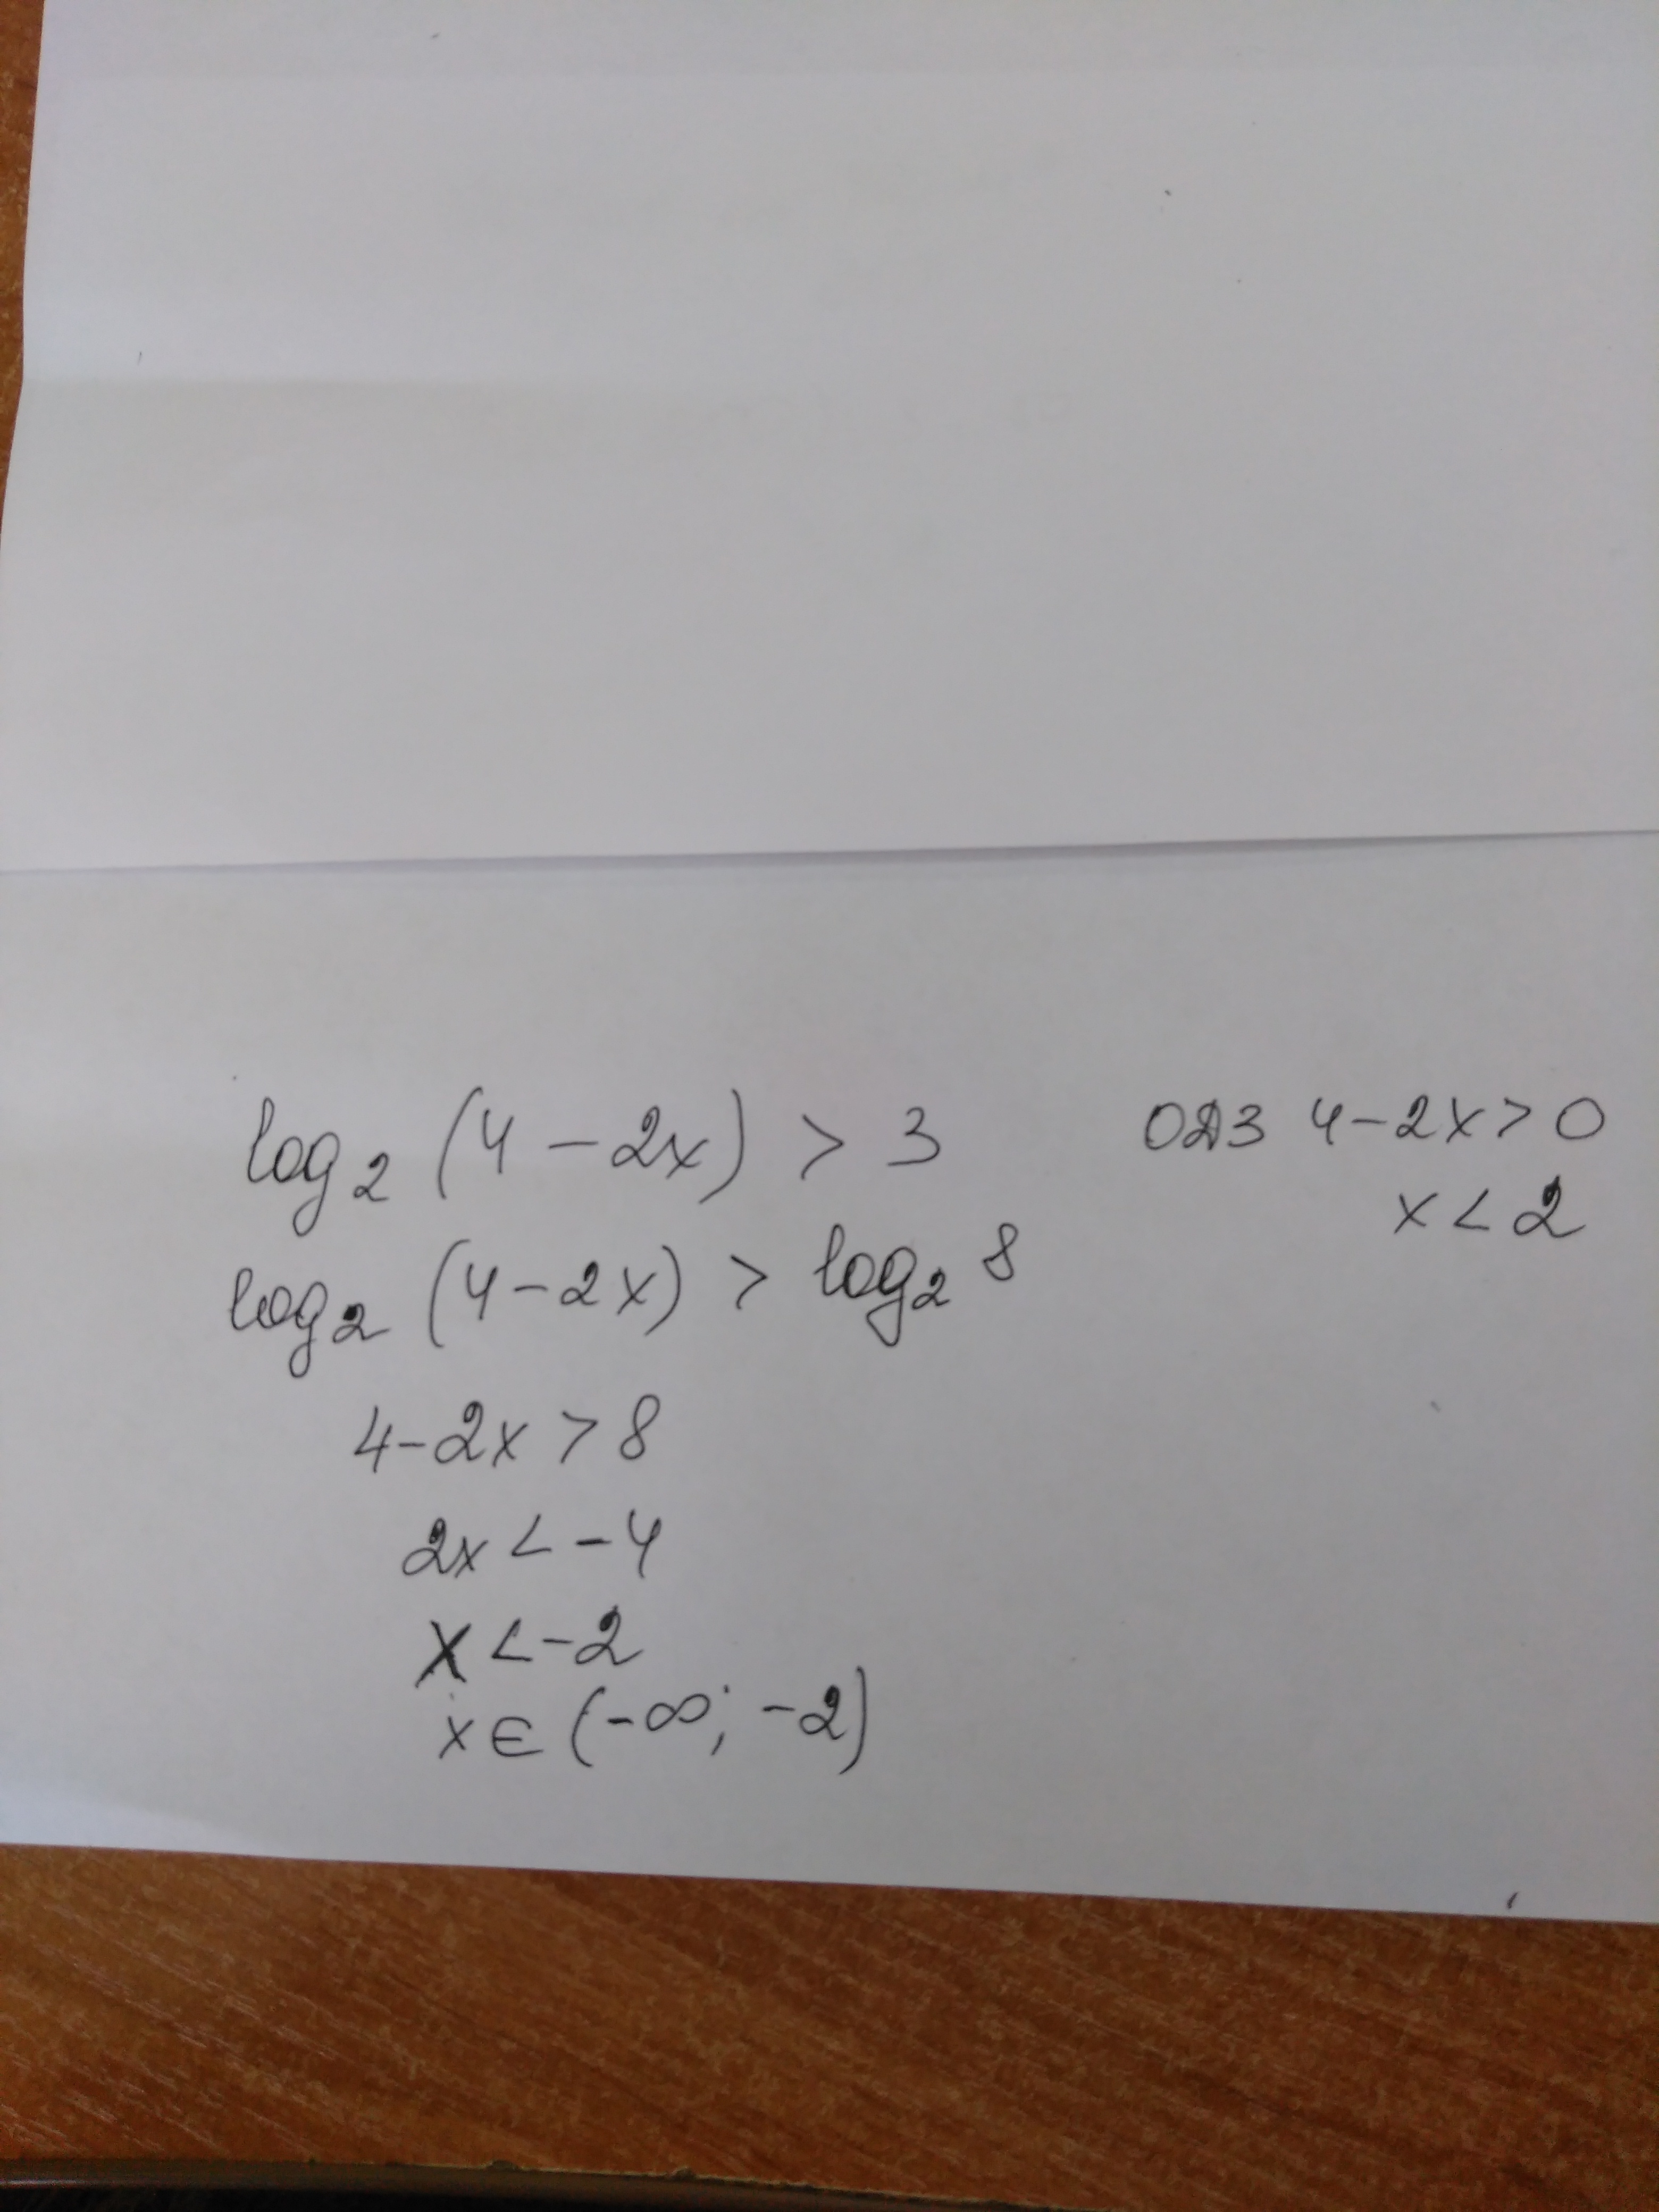 log₂ (4 - 2x) > 3 ОДЗ 4 - 2x > 0
x < 2
log₂ (4 - 2x) > log₂ 8
4 - 2x > 8
2x < -4
x < -2
x ∈ (-∞; -2)